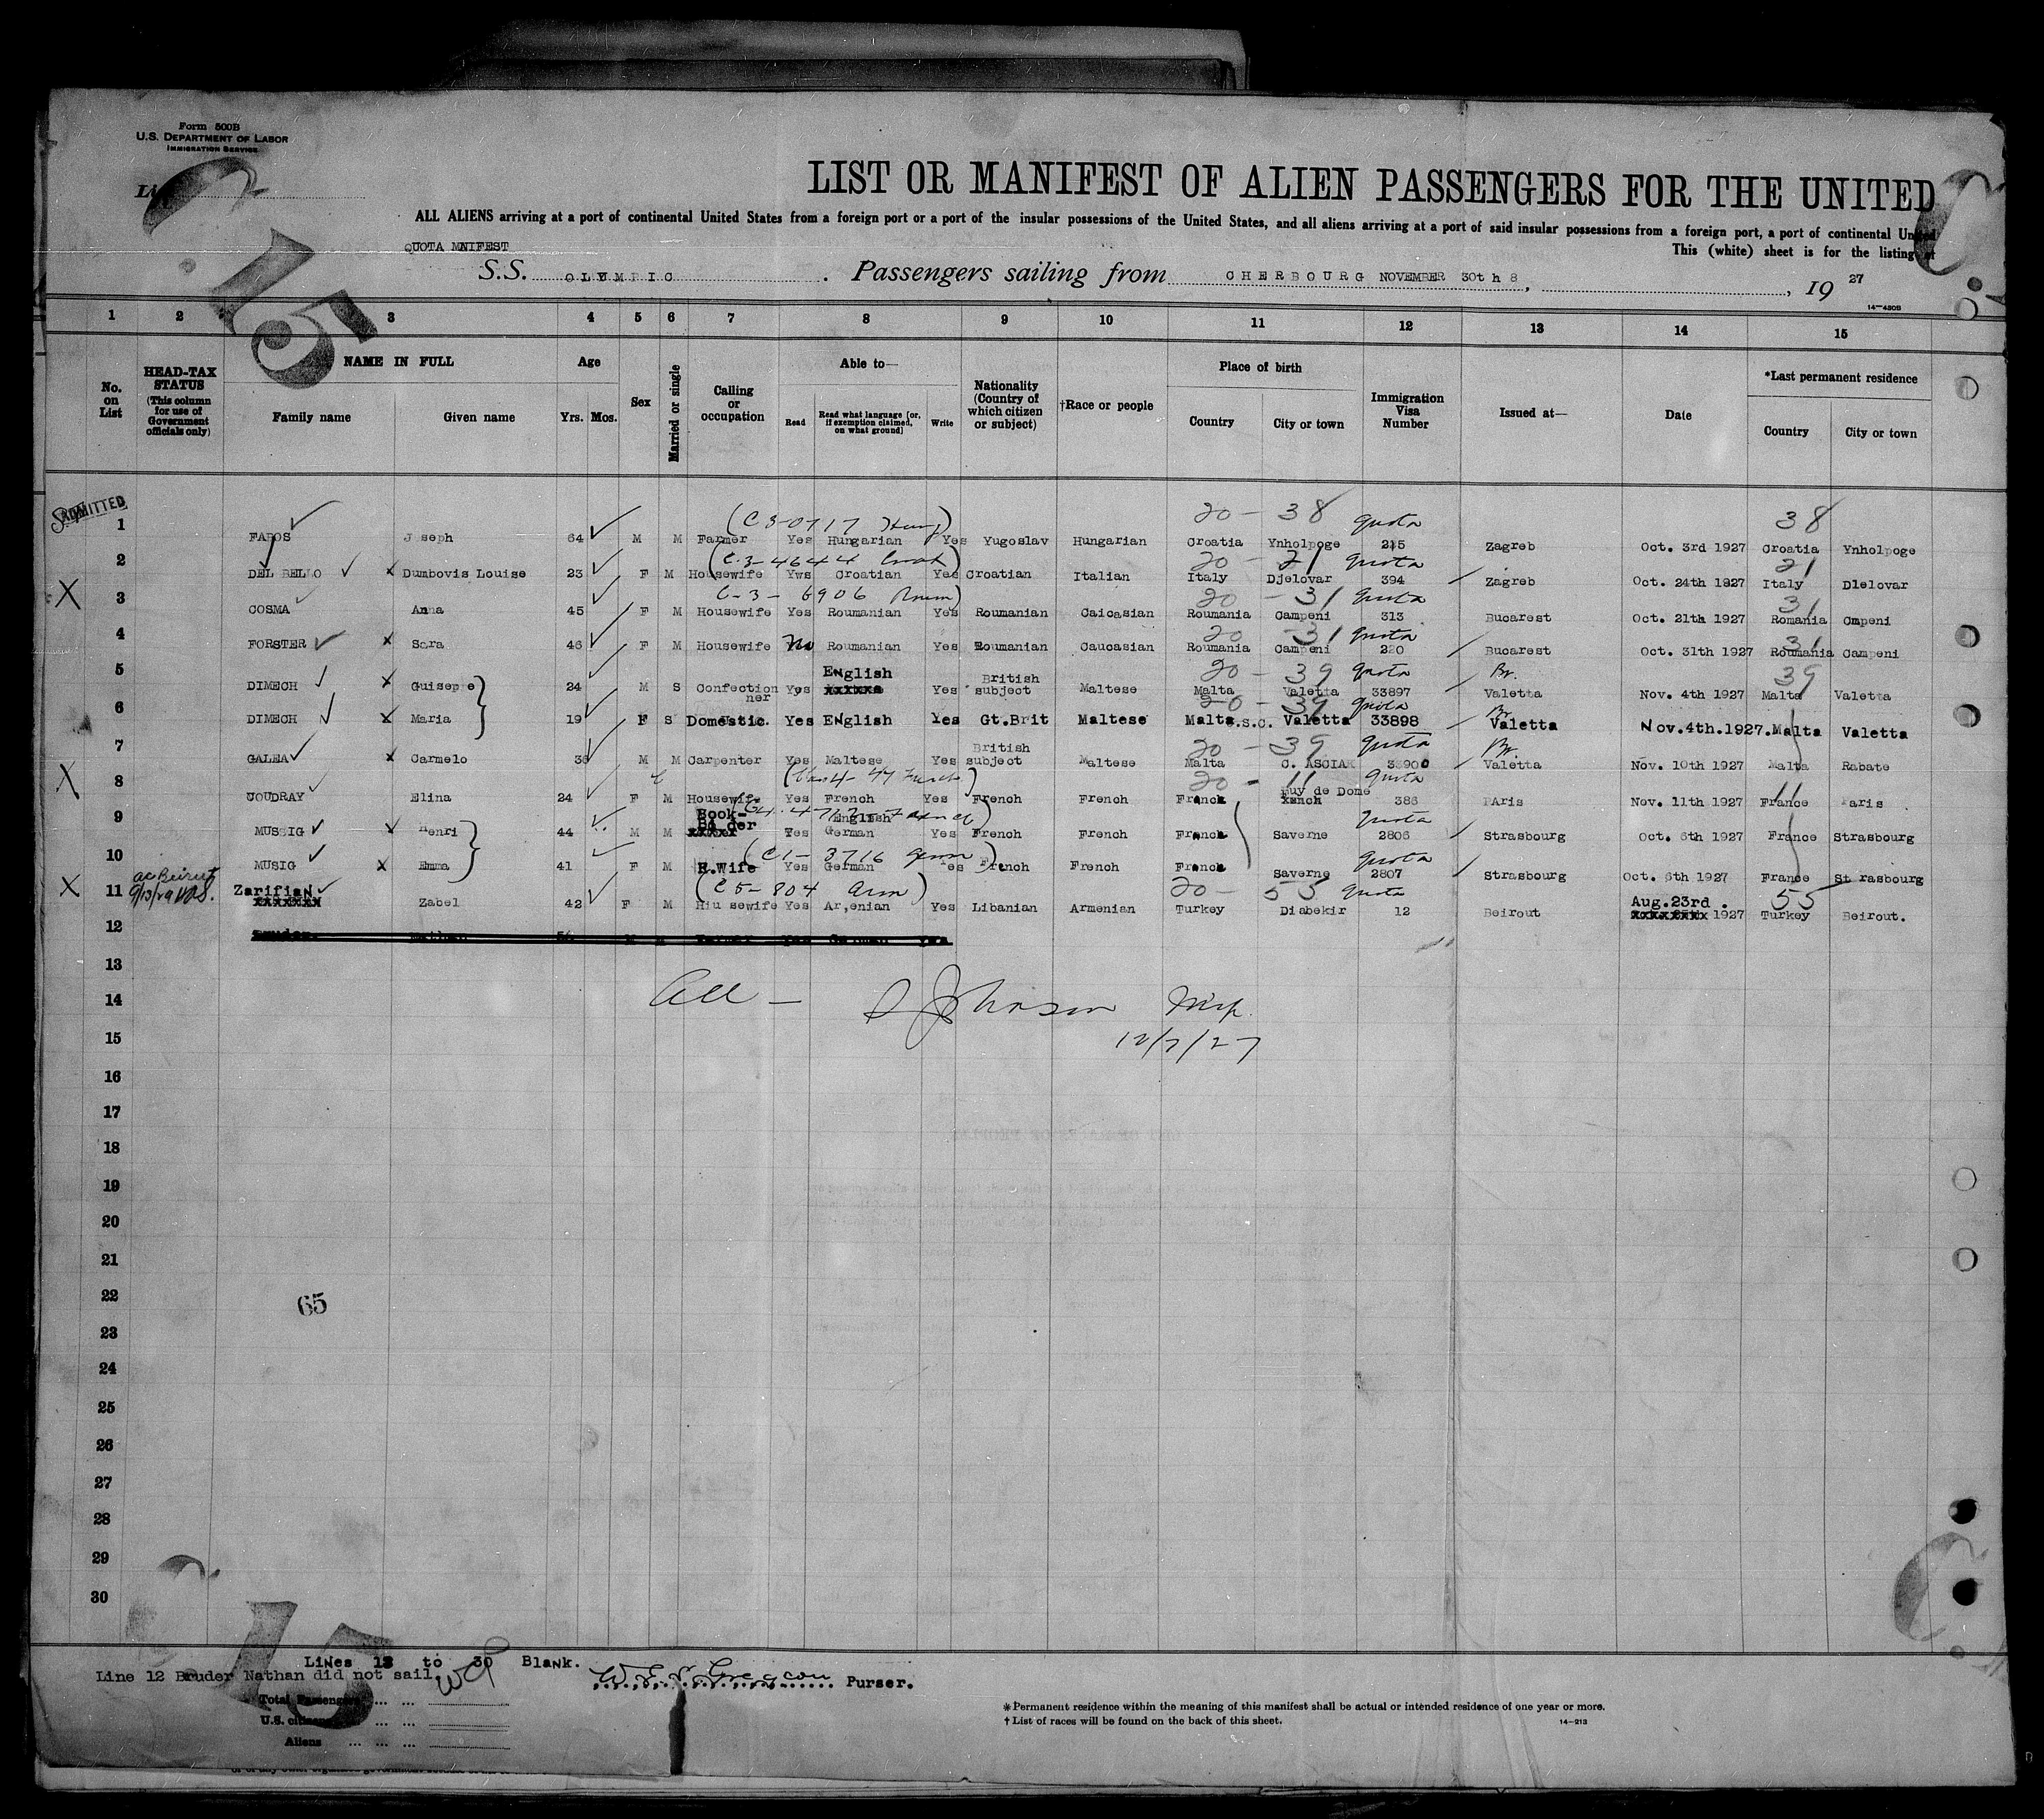 Form 500B
U.S. DEPARTMENT OF LABOR
IMMIGRATION SERVICE
15
LIST OR MANIFEST OF ALIEN PASSENGERS FOR THE UNITED
ALL ALIENS arriving at a port of continental United States from a foreign port or a port of the insular possessions of the United States, and all aliens arriving at a port of said insular possessions from a foreign port, a port of continental United
QUOTA MNIFEST
This (white) sheet is for the listing of
S.S. OLYMPIC. Passengers sailing from CHERBOURG NOVEMBER 30th 8, , 19 27
14-430B
1 2 3 4 5 6 7 8 9 10 11 12 13 14 15
No. on List
HEAD-TAX STATUS (This column for use of Government officials only)
NAME IN FULL
Family name Given name
Age
Yrs. Mos.
Sex
Married or single
Calling or occupation
Able to—
Read Read what language [or, if exemption claimed, on what ground] Write
Nationality (Country of which citizen or subject)
†Race or people
Place of birth
Country City or town
Immigration Visa Number
Issued at—
Date
*Last permanent residence
Country City or town
ADMITTED
(C 3-0717 Hung) 20 - 38 quota 38
1 FABOS J seph 64 M M Farmer Yes Hungarian Yes Yugoslav Hungarian Croatia Ynholpoge 215 Zagreb Oct. 3rd 1927 Croatia Ynholpoge
(C.3-4644 Croat) 20 - 21 quota 21
2 DEL BELLO Dumbovis Louise 23 F M Housewife Yws Croatian Yes Croatian Italian Italy Djelovar 394 Zagreb Oct. 24th 1927 Italy Dlelovar
C-3-6906 Roum) 20 - 31 quota 31
X 3 COSMA Anna 45 F M Housewife Yes Roumanian Yes Roumanian Caicasian Roumania Campeni 313 Bucarest Oct. 21th 1927 Romania Cmpeni
20 - 31 quota 31
4 FORSTER Sara 46 F M Housewife No Roumanian Yes Roumanian Caucasian Roumania Campeni 220 Bucarest Oct. 31th 1927 Roumania Campeni
English British 20 - 39 quota Br. 39
5 DIMECH Guiseppe 24 M S Confectionner Yes xxxxxx Yes subject Maltese Malta Valetta 33897 Valetta Nov. 4th 1927 Malta Valetta
20 - 39 quota Br.
6 DIMECH Maria 19 F S Domestic. Yes English Yes Gt.Brit Maltese Malta.S.C. Valetta 33898 Valetta Nov.4th.1927. Malta Valetta
British 20 - 39 quota Br.
7 GALEA Carmelo 36 M M Carpenter Yes Maltese Yes subject Maltese Malta C. ASCIAK 33900 Valetta Nov. 10th 1927 Malta Rabate
20 - 11 quota 11
X 8 Elina 24 F M Housewife Yes French Yes French French France Puy de Dome 386 PAris Nov. 11th 1927 France Paris
Book- English quota
9 MUSSIG Henri 44 M M xxxxx Yes German Yes French French France Saverne 2806 Strasbourg Oct. 6th 1927 France Strasbourg
(C1-3716 Germ) quota
10 MUSIG Emma 41 F M H.Wife Yes German Yes French French France Saverne 2807 Strasbourg Oct. 6th 1927 France St rasbourg
ac Beirut 9/13/29
Zarifian (C5-804 arm) 20 - 55 quota Aug.23rd. 55
X 11 xxxxxxx Zabel 42 F M Hiu sewife Yes Ar,enian Yes Libanian Armenian Turkey Diabekir 12 Beirout xxxxxxxx 1927 Turkey Beirout.
12 Bruder. Nathan 54 M M Farmer Yes German Yes
13
All - S Johnson Insp.
14
12/7/27
15
16
17
18
19
20
21
22
65
23
24
25
26
27
28
29
30
15
Lines 13 to 30 Blank.
Line 12 Bruder Nathan did not sail.
Purser.
Total Passengers ... ...
U.S. citizens ... ...
Aliens ... ... ...
* Permanent residence within the meaning of this manifest shall be actual or intended residence of one year or more.
† List of races will be found on the back of this sheet. 14-213